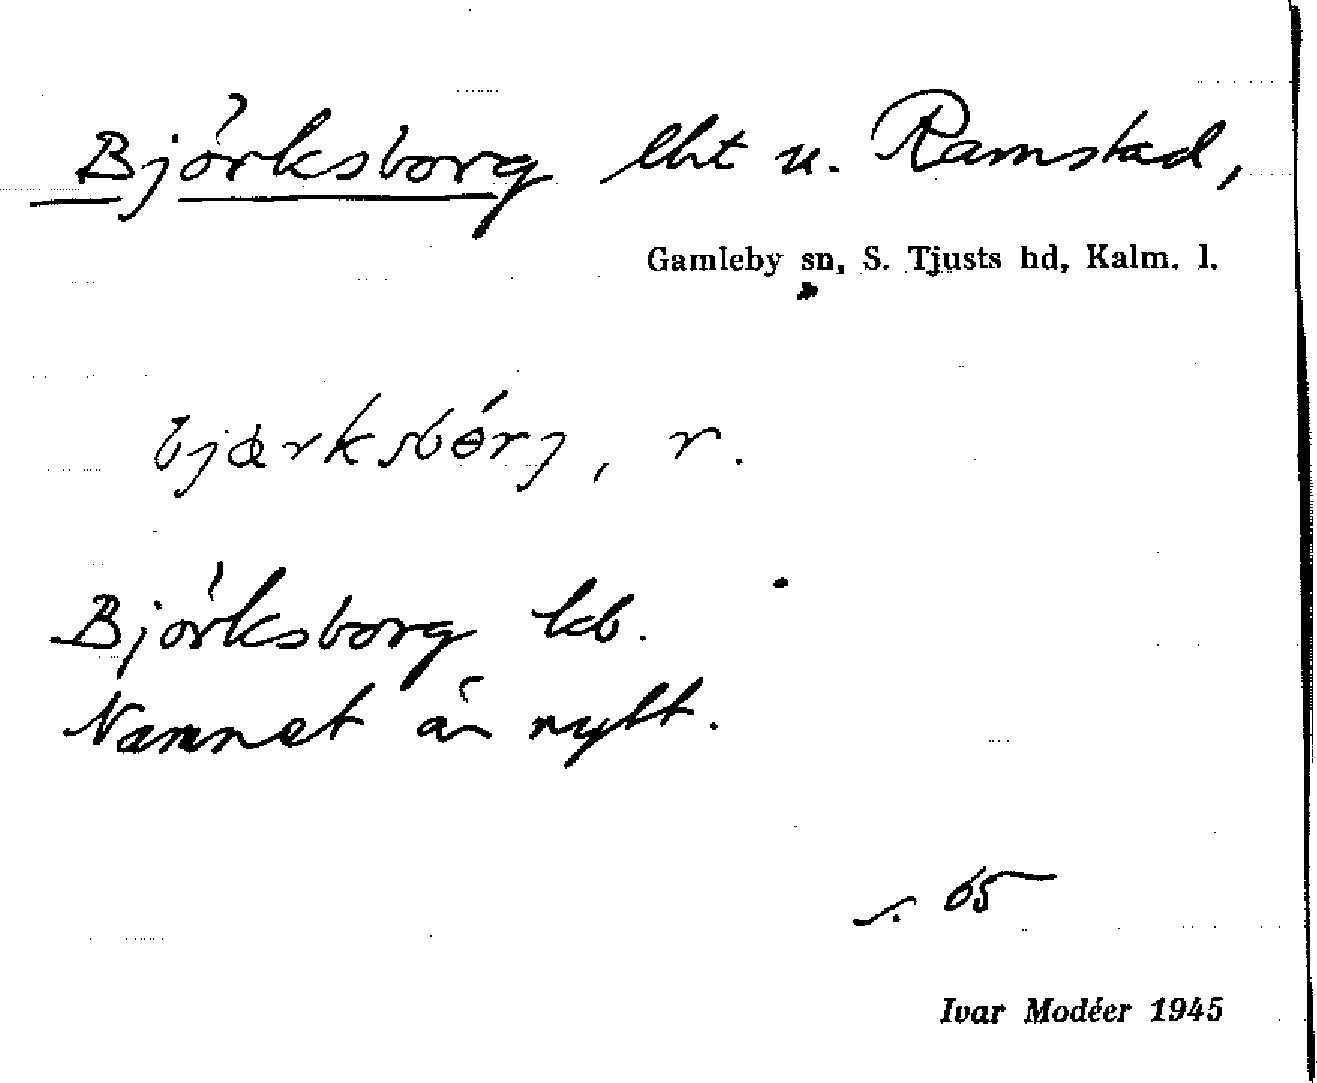 Björksborg lht u. Ramstad,
Gamleby sn, S. Tjusts hd, Kalm. l.
bjœrksbórj, r.
Björksborg kb.
Namnet är nytt.
s. 65
Ivar Modéer 1945